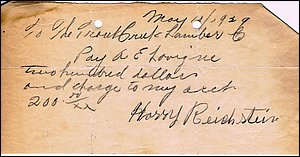 May 1/1929
To The Trout Creek Lumber Co
Pay A E Lovigne
two hundred dollars
and charge to my acct
200 00/xx
Harry Reichstein